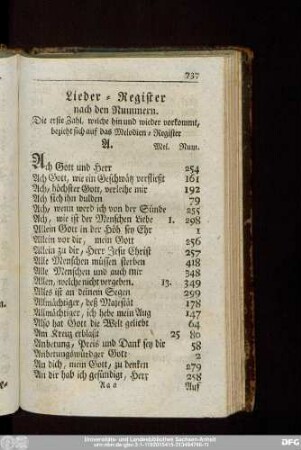 737
Lieder-Register
nach den Nummern.
Die erste Zahl, welche hin und wieder vorkommt,
bezieht sich auf das Melodien-Register
A. Mel. Num.
Ach Gott und Herr 254
Ach Gott, wie ein Geschwätz verfließt 161
Ach, höchster Gott, verleihe mir 192
Ach sieh ihn dulden 79
Ach, wenn werd ich von der Sünde 255
Ach, wie ist der Menschen Liebe 1. 298
Allein Gott in der Höh sey Ehr 1
Allein vor dir, mein Gott 256
Allein zu dir, Herr Jesu Christ 257
Alle Menschen müssen sterben 418
Alle Menschen und auch mir 348
Allen, welche nicht vergeben. 13. 349
Alles ist an deinem Segen 299
Allmächtiger, deß Majestät 178
Allmächtiger, ich hebe mein Aug 147
Also hat Gott die Welt geliebt 64
Am Kreuz erblaßt 25 80
Anbetung, Preis und Dank sey dir 58
Anbetungswürdger Gott 2
An dich, mein Gott, zu denken 279
An dir hab ich gesündigt, Herr 258
Aaa Auf
Universitäts- und Landesbibliothek Sachsen-Anhalt